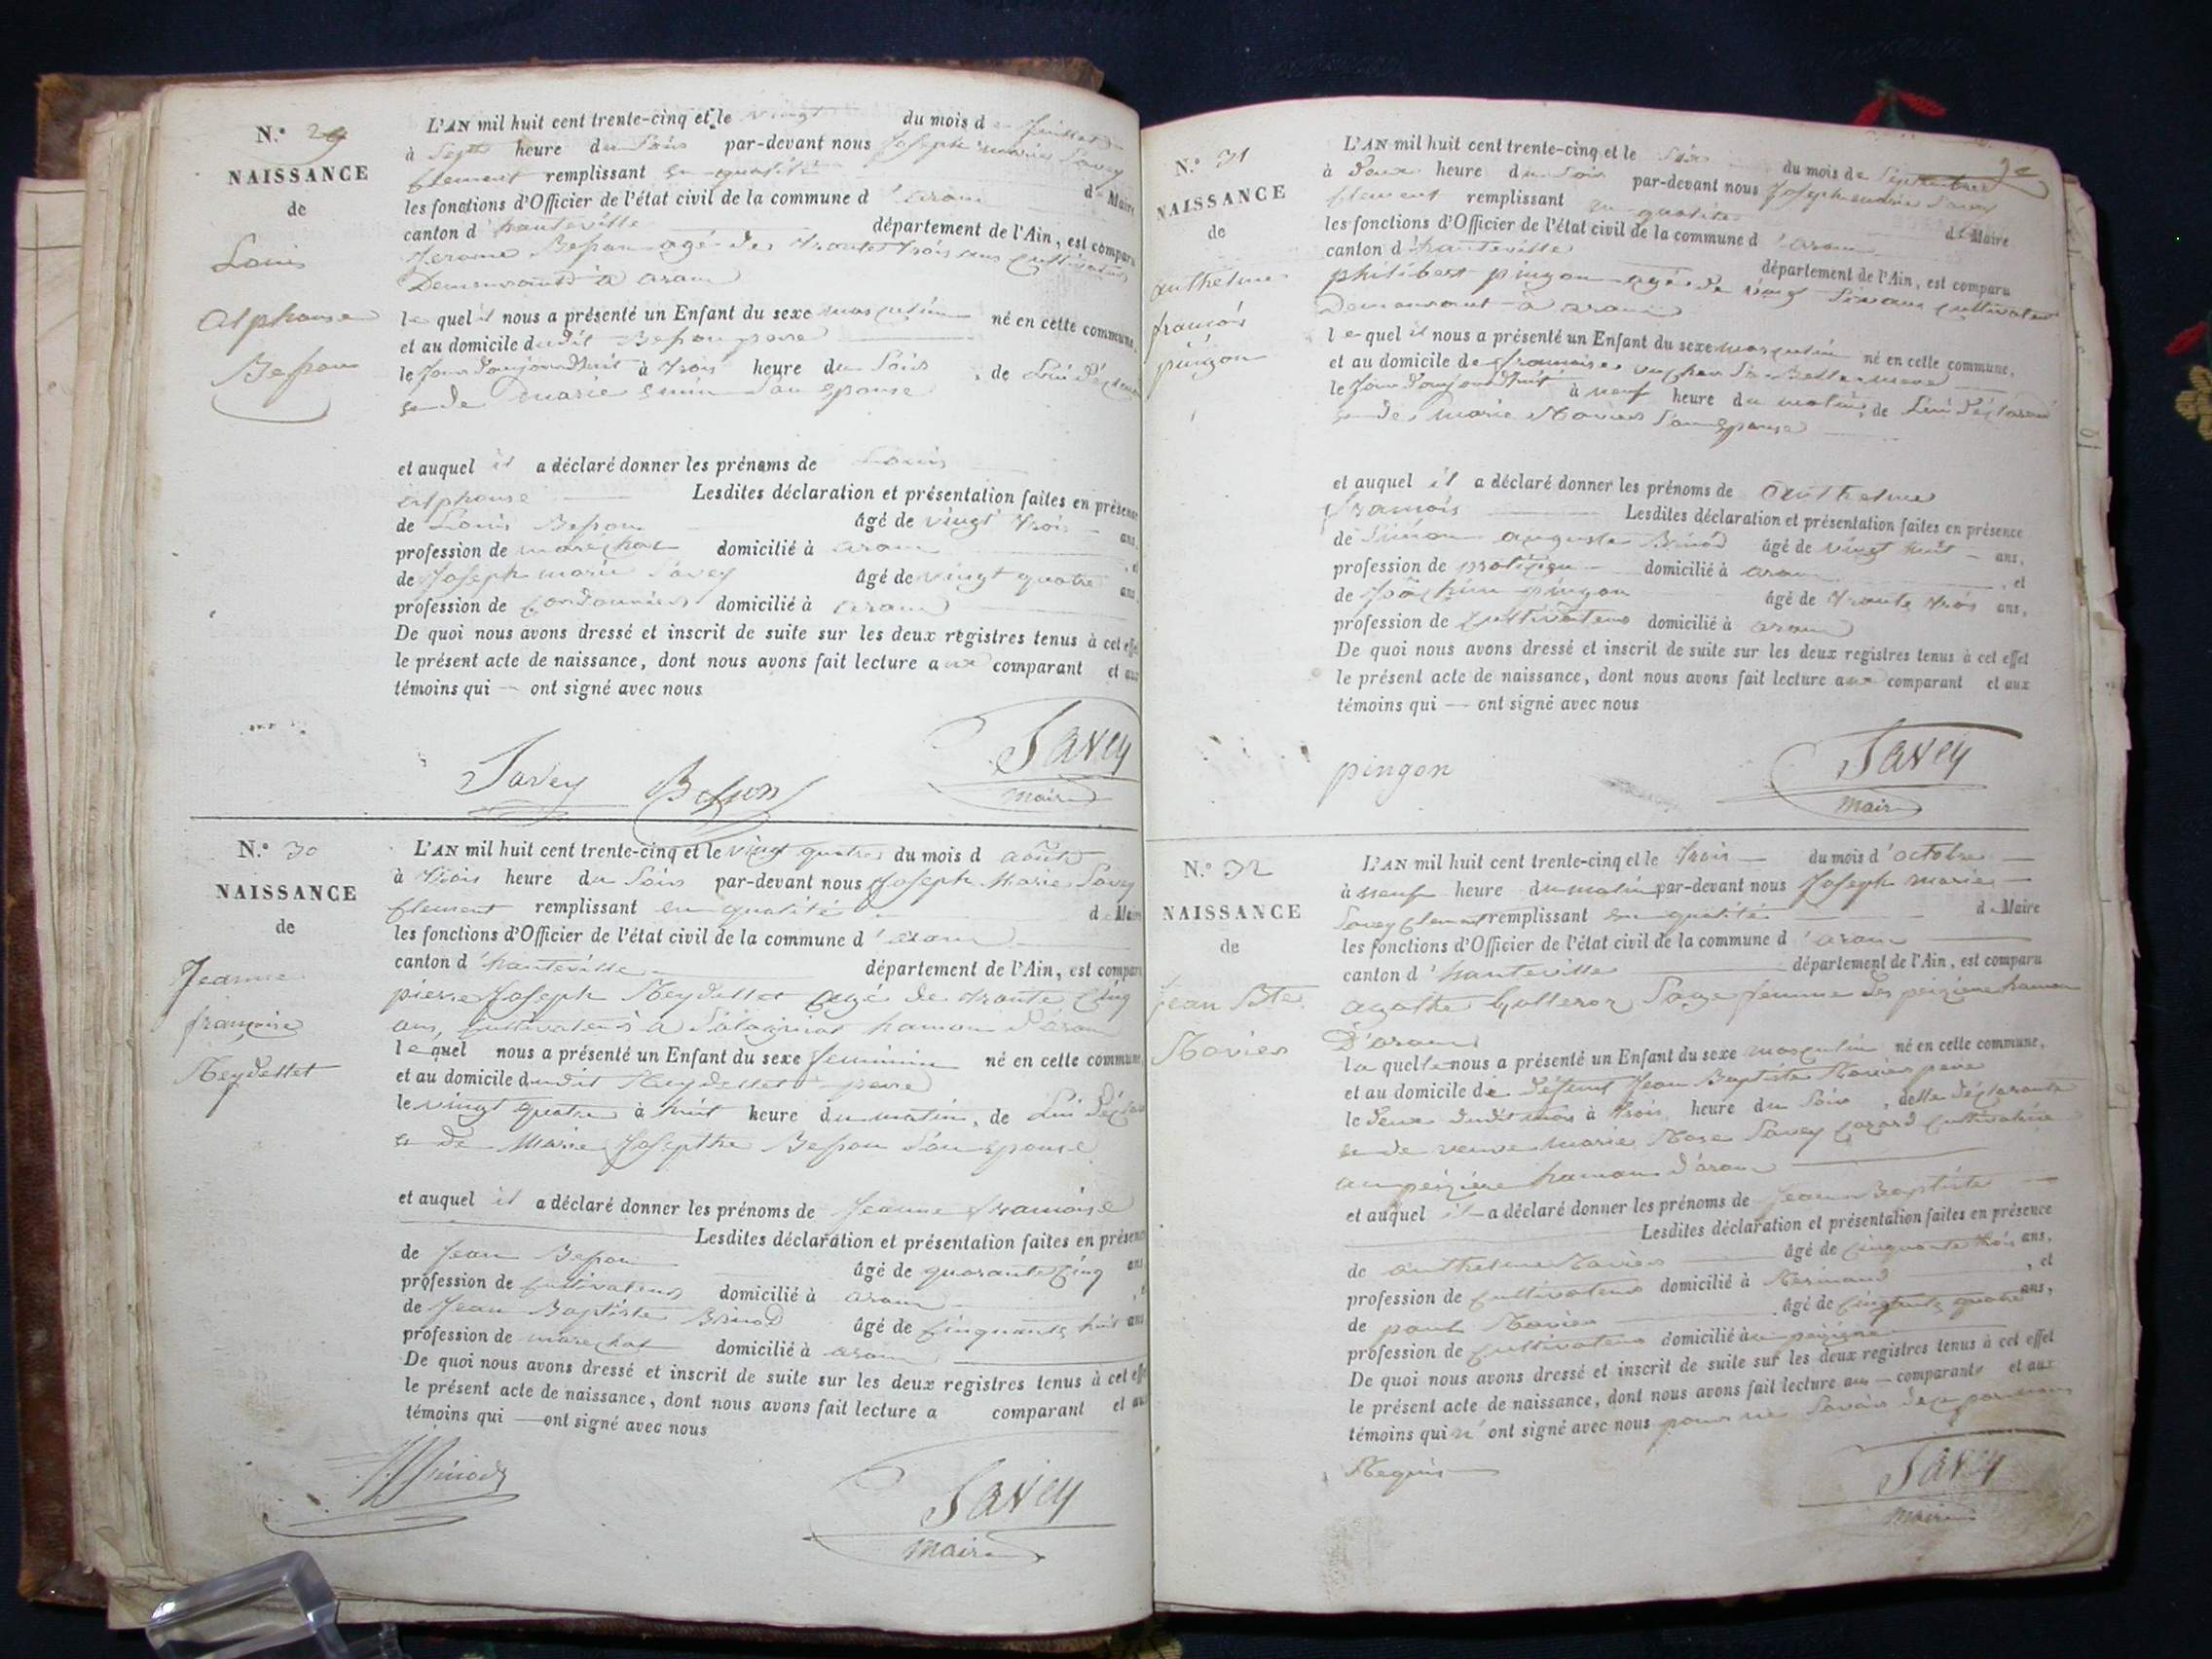 N.° 29
NAISSANCE
de
Louis
Alphonse
Besson
L'AN mil huit cent trente-cinq et le vingt du mois de Juillet
à Sept heure du Soir par-devant nous Joseph marie Savey
Clement remplissant en qualité de Maire
les fonctions d'Officier de l'état civil de la commune d'aran
canton d'hauteville département de l'Ain, est comparu
Jerome Besson agé de trente trois ans Cultivateur
Demeurant à aran
lequel il nous a présenté un Enfant du sexe masculin né en cette commune,
et au domicile dudit Besson pere
le Jour d'aujourd'huit à trois heure du Soir, de Lui Déclarant
et de marie Son Epouse
et auquel il a déclaré donner les prénoms de Louis
alphonse Lesdites déclaration et présentation faites en présence
de Louis Besson âgé de vingt trois ans,
profession de maréchal domicilié à aran, et
de Joseph marie Savey âgé de vingt quatre ans,
profession de Cordonnier domicilié à aran
De quoi nous avons dressé et inscrit de suite sur les deux registres tenus à cet effet
le présent acte de naissance, dont nous avons fait lecture aux comparant et aux
témoins qui ont signé avec nous
Savey Besson Savey
maire
N.° 30
NAISSANCE
de
Jeanne
françoise
Reydellet
L'AN mil huit cent trente-cinq et le vingt quatre du mois d août
à trois heure du Soir par-devant nous Joseph Marie Savey
Clement remplissant en qualité de Maire
les fonctions d'Officier de l'état civil de la commune d'aran
canton d'hauteville département de l'Ain, est comparu
pierre Joseph Reydellet agé de trente Cinq
ans, Cultivateur à hamau D'aran
lequel nous a présenté un Enfant du sexe feminin né en cette commune,
et au domicile dudit Reydellet pere
le vingt quatre à huit heure du matin, de Lui Déclarant
et de Marie Josepthe Besson Son Epouse
et auquel il a déclaré donner les prénoms de Jeanne francoise
Lesdites déclaration et présentation faites en présence
de Jean Besson âgé de quarante Cinq ans,
profession de Cultivateur domicilié à aran, et
de Jean Baptiste Binod âgé de Cinquante huit ans
profession de marechal domicilié à aran
De quoi nous avons dressé et inscrit de suite sur les deux registres tenus à cet effet
le présent acte de naissance, dont nous avons fait lecture a comparant et aux
témoins qui ont signé avec nous
Binod Savey
maire
N.° 31
NAISSANCE
de
anthelme
francois
pingon
L'AN mil huit cent trente-cinq et le du mois de Septembre
à Deux heure du Soir par-devant nous Joseph marie Savey
Clement remplissant en qualité de Maire
les fonctions d'Officier de l'état civil de la commune d'aran
canton d'hauteville département de l'Ain, est comparu
philibert pingon agé de vingt ans Cultivateur
Demeurant à aran
lequel il nous a présenté un Enfant du sexe masculin né en cette commune,
et au domicile de francoise Sa Belle mere
le Jour d'aujourd'huit à neuf heure du matin, de Lui Déclarant
et de marie Son Epouse
et auquel il a déclaré donner les prénoms de anthelme
francois Lesdites déclaration et présentation faites en présence
de Simon auguste Binod âgé de vingt huit ans,
profession de domicilié à aran, et
de Joachim pingon âgé de trente trois ans,
profession de Cultivateur domicilié à aran
De quoi nous avons dressé et inscrit de suite sur les deux registres tenus à cet effet
le présent acte de naissance, dont nous avons fait lecture aux comparant et aux
témoins qui ont signé avec nous
pingon Savey
maire
N.° 32
NAISSANCE
de
Jean Bte
L'AN mil huit cent trente-cinq et le trois du mois d'octobre
à neuf heure du matin par-devant nous Joseph marie
Savey Clement remplissant en qualité de Maire
les fonctions d'Officier de l'état civil de la commune d'aran
canton d'hauteville département de l'Ain, est comparu
agathe Sage femme hamau
D'aran
laquelle nous a présenté un Enfant du sexe masculin né en cette commune,
et au domicile de défunt Jean Baptiste pere
le Deux dudit mois à trois heure du Soir, de la déclarante
et de veuve marie Rose Savey Cultivatrice
hamau d'aran
et auquel il a déclaré donner les prénoms de Jean Baptiste
Lesdites déclaration et présentation faites en présence
de anthelme âgé de Cinquante trois ans,
profession de Cultivateur domicilié à, et
de paul âgé de quatre ans,
profession de Cultivateur domicilié
De quoi nous avons dressé et inscrit de suite sur les deux registres tenus à cet effet
le présent acte de naissance, dont nous avons fait lecture aux comparants et aux
témoins qui n'ont signé avec nous pour ne Savoir de ce par nous
Requis
Savey
maire